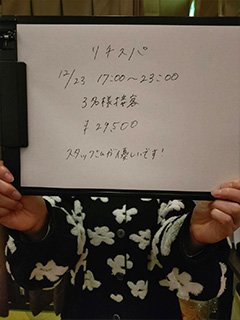 リチスパ
12/23 17:00~23:00
3名様接客
¥29,500
スタッフさんが優しいです!